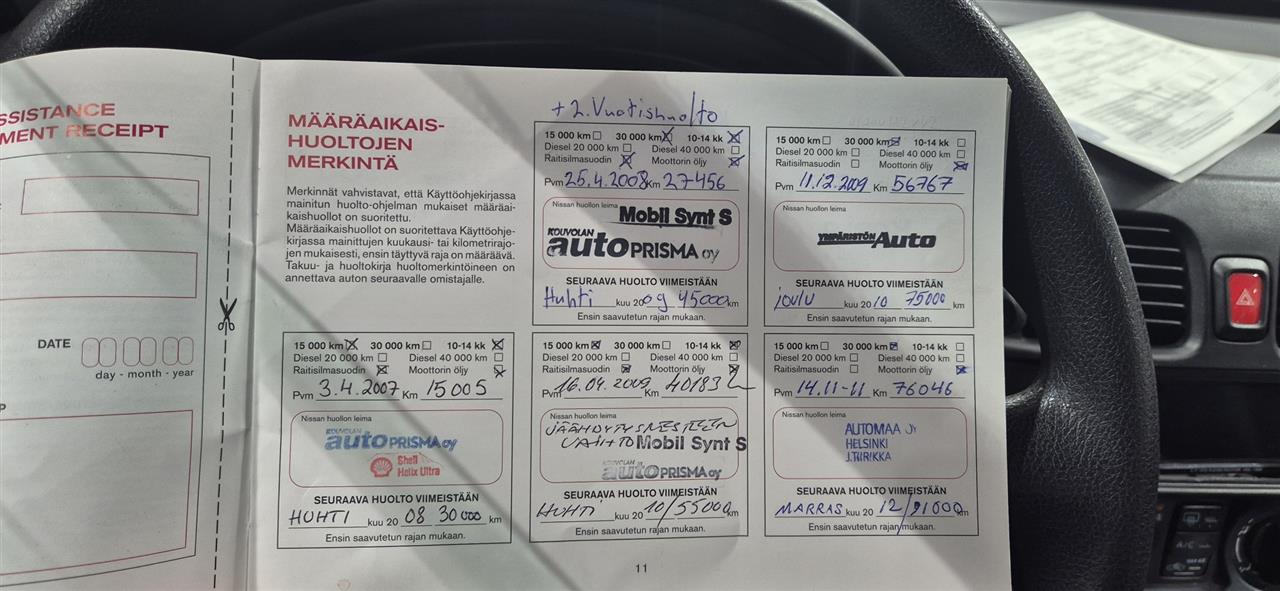 SSISTANCE
MENT RECEIPT
DATE
day - month - year
MÄÄRÄAIKAIS-
HUOLTOJEN
MERKINTÄ
Merkinnät vahvistavat, että Käyttöohjekirjassa
mainitun huolto-ohjelman mukaiset määräai-
kaishuollot on suoritettu.
Määräaikaishuollot on suoritettava Käyttöohje-
kirjassa mainittujen kuukausi- tai kilometrirajo-
jen mukaisesti, ensin täyttyvä raja on määräävä.
Takuu- ja huoltokirja huoltomerkintöineen on
annettava auton seuraavalle omistajalle.
15 000 km 30 000 km 10-14 kk
Diesel 20 000 km Diesel 40 000 km
Raitisilmasuodin Moottorin öljy
Pvm 3.4.2007 Km 15005
Nissan huollon leima
KOUVOLAN
autoPRISMA oy
Shell
Helix Ultra
SEURAAVA HUOLTO VIIMEISTÄÄN
HUHTI kuu 20 08 30 000 km
Ensin saavutetun rajan mukaan.
+ 2. Vuotishuolto
15 000 km 30 000 km 10-14 kk
Diesel 20 000 km Diesel 40 000 km
Raitisilmasuodin Moottorin öljy
Pvm 25.4.2008 Km 27456
Nissan huollon leima
Mobil Synt S
KOUVOLAN
autoPRISMA oy
SEURAAVA HUOLTO VIIMEISTÄÄN
Huhti kuu 20 09 45000 km
Ensin saavutetun rajan mukaan.
15 000 km 30 000 km 10-14 kk
Diesel 20 000 km Diesel 40 000 km
Raitisilmasuodin Moottorin öljy
Pvm 16.04.2009 Km 40183
Nissan huollon leima
JÄÄHDYTYSNESTEEN
VAIHTO Mobil Synt S
KOUVOLAN
autoPRISMA oy
SEURAAVA HUOLTO VIIMEISTÄÄN
HUHTI kuu 20 10/55000 km
Ensin saavutetun rajan mukaan.
15 000 km 30 000 km 10-14 kk
Diesel 20 000 km Diesel 40 000 km
Raitisilmasuodin Moottorin öljy
Pvm 11.12.2009 Km 56767
Nissan huollon leima
YMPÄRISTÖN Auto
SEURAAVA HUOLTO VIIMEISTÄÄN
joulu kuu 20 10 75000 km
Ensin saavutetun rajan mukaan.
15 000 km 30 000 km 10-14 kk
Diesel 20 000 km Diesel 40 000 km
Raitisilmasuodin Moottorin öljy
Pvm 14.11-11 Km 76046
Nissan huollon leima
AUTOMAA OY
HELSINKI
J.TIIRIKKA
SEURAAVA HUOLTO VIIMEISTÄÄN
MARRAS kuu 20 12/91000 km
Ensin saavutetun rajan mukaan.
11
A/C